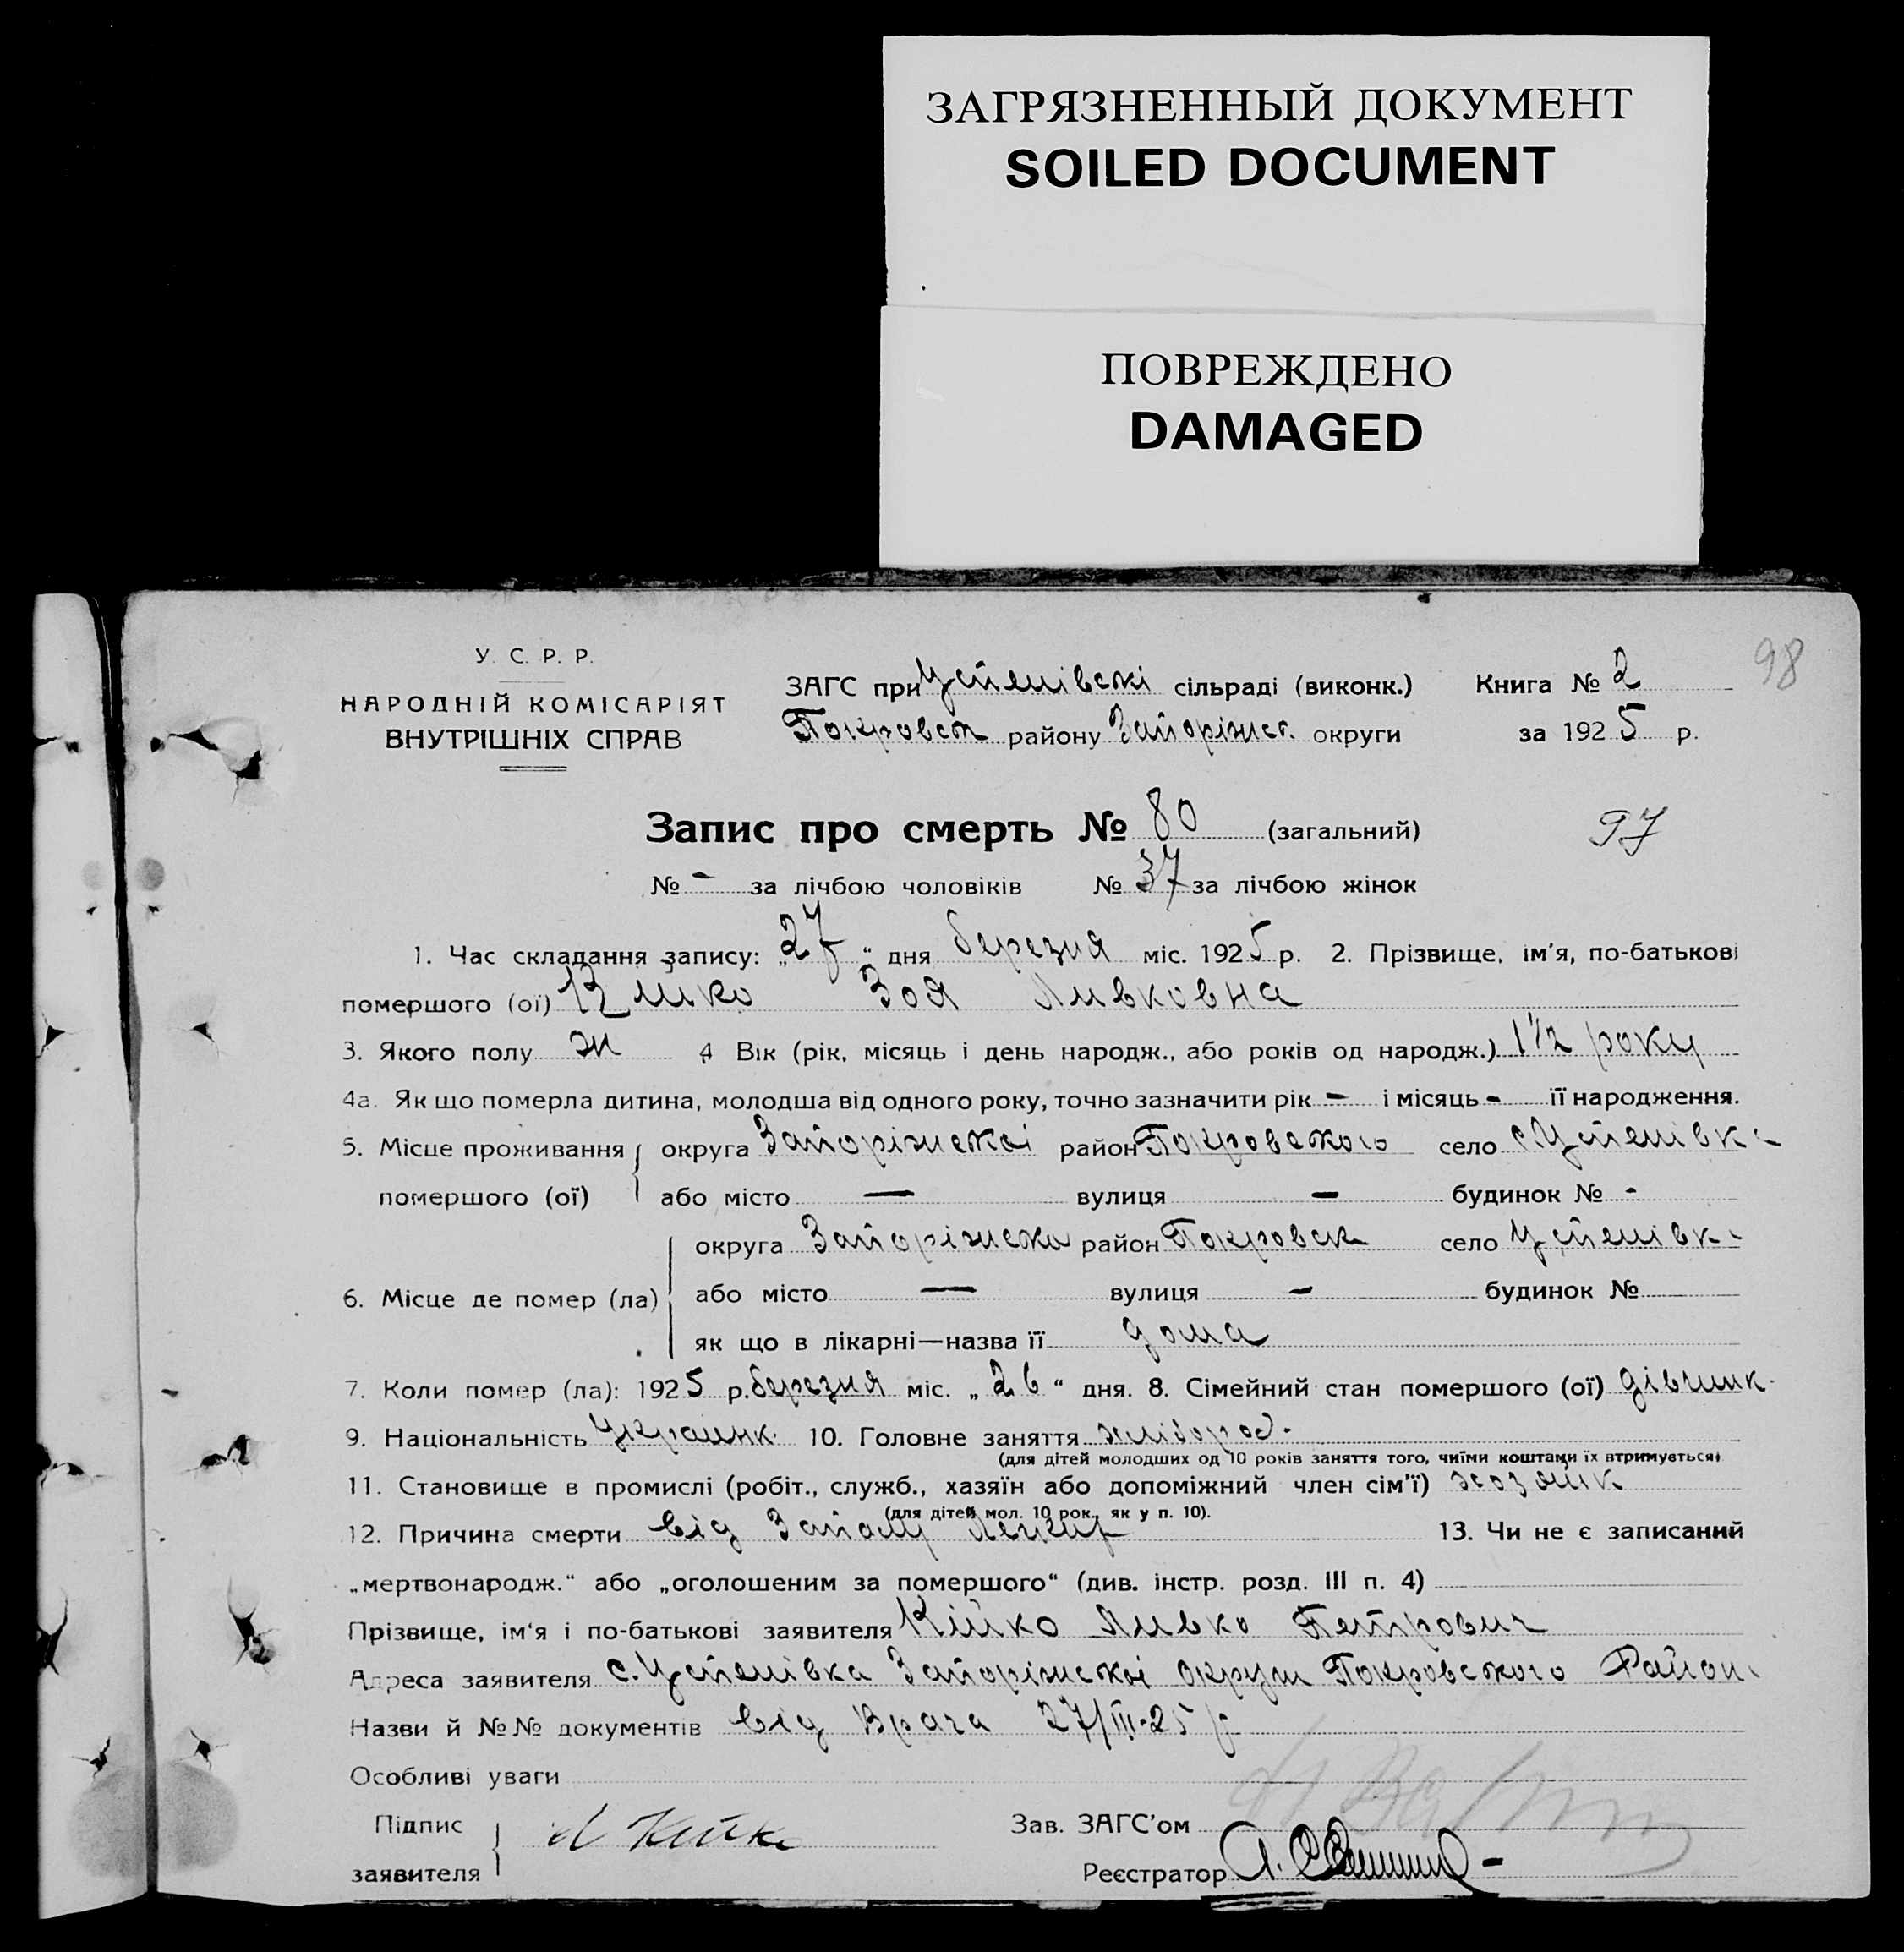 ЗАГРЯЗНЕННЫЙ ДОКУМЕНТ
SOILED DOCUMENT
ПОВРЕЖДЕНО
DAMAGED
98
У. С. Р. Р.
НАРОДНІЙ КОМІСАРІЯТ
ВНУТРІШНІХ СПРАВ
ЗАГС при Успенівскі сільраді (виконк.) Книга № 2
Покровск району Запоріжск. округи за 1925 р.
Запис про смерть № 80 (загальний) 97
№ - за лічбою чоловіків № 37 за лічбою жінок
1. Час складання запису: „27“ дня березня міс. 1925 р. 2. Прізвище, ім’я, по-батькові
помершого (ої) Зоя
3. Якого полу ж 4 Вік (рік, місяць і день народж., або років од народж.) 1½ року
4а. Як що померла дитина, молодша від одного року, точно зазначити рік - і місяць - її народження.
5. Місце проживання округа Запоріжскоі район Покровского село с. Успенівка
помершого (ої) або місто — вулиця — будинок № -
округа Запоріжска район Покровск село Успенівка
6. Місце де помер (ла) або місто — вулиця — будинок №
як що в лікарні—назва її дома
7. Коли помер (ла): 1925 р. березня міс. „26“ дня. 8. Сімейний стан помершого (ої)
9. Національність Украинк. 10. Головне заняття хлібороб.
(для дітей молодших од 10 років заняття того, чиїми коштами їх втримується)
11. Становище в промислі (робіт., служб., хазяїн або допоміжний член сім’ї)
(для дітей мол. 10 рок., як у п. 10).
12. Причина смерти від Запалу 13. Чи не є записаний
„мертвонародж.“ або „оголошеним за помершого“ (див. інстр. розд. III п. 4)
Прізвище, ім‘я і по-батькові заявителя Кійко Петрович
Адреса заявителя с. Успенівка Запоріжскоі округи Покровского Району
Назви й №№ документів від Врача 27/III-25 р
Особливі уваги
Підпис Зав. ЗАГС’ом
заявителя Реєстратор